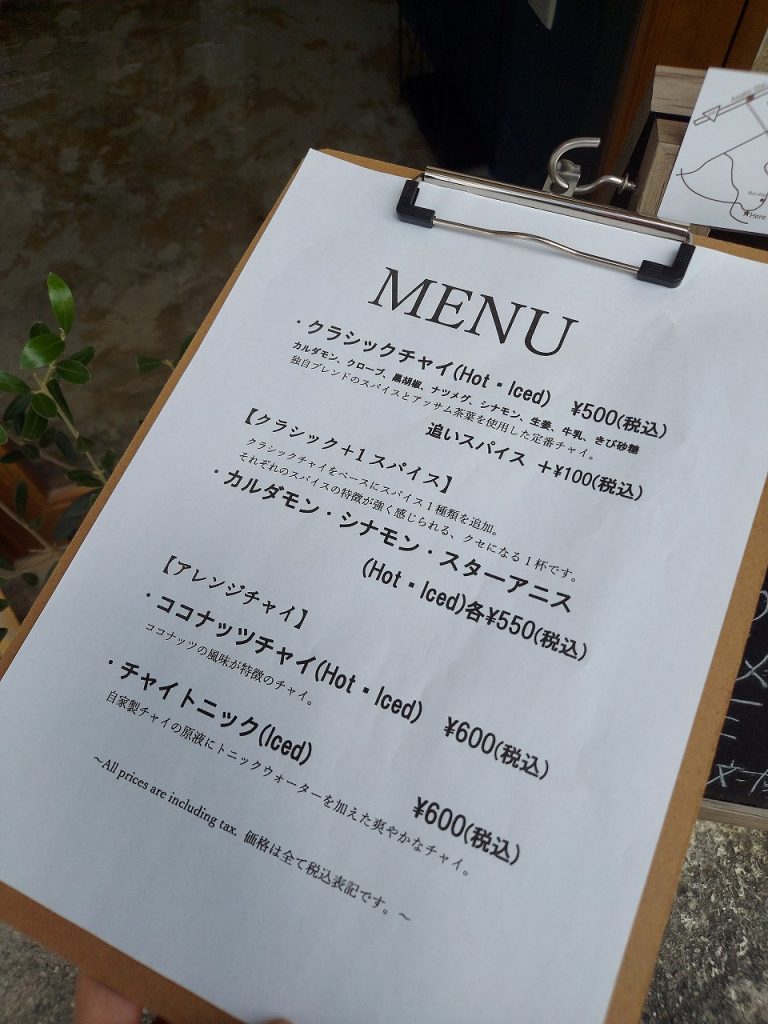 MENU
・クラシックチャイ(Hot・Iced) ¥500(税込)
カルダモン、クローブ、黒胡椒、ナツメグ、シナモン、生姜、牛乳、きび砂糖
独自ブレンドのスパイスとアッサム茶葉を使用した定番チャイ。
追いスパイス +¥100(税込)
【クラシック+1スパイス】
クラシックチャイをベースにスパイス1種類を追加。
それぞれのスパイスの特徴が強く感じられる、クセになる1杯です。
・カルダモン・シナモン・スターアニス
(Hot・Iced)各¥550(税込)
【アレンジチャイ】
・ココナッツチャイ(Hot・Iced) ¥600(税込)
ココナッツの風味が特徴のチャイ。
・チャイトニック(Iced) ¥600(税込)
自家製チャイの原液にトニックウォーターを加えた爽やかなチャイ。
~All prices are including tax. 価格は全て税込表記です。~
★Here